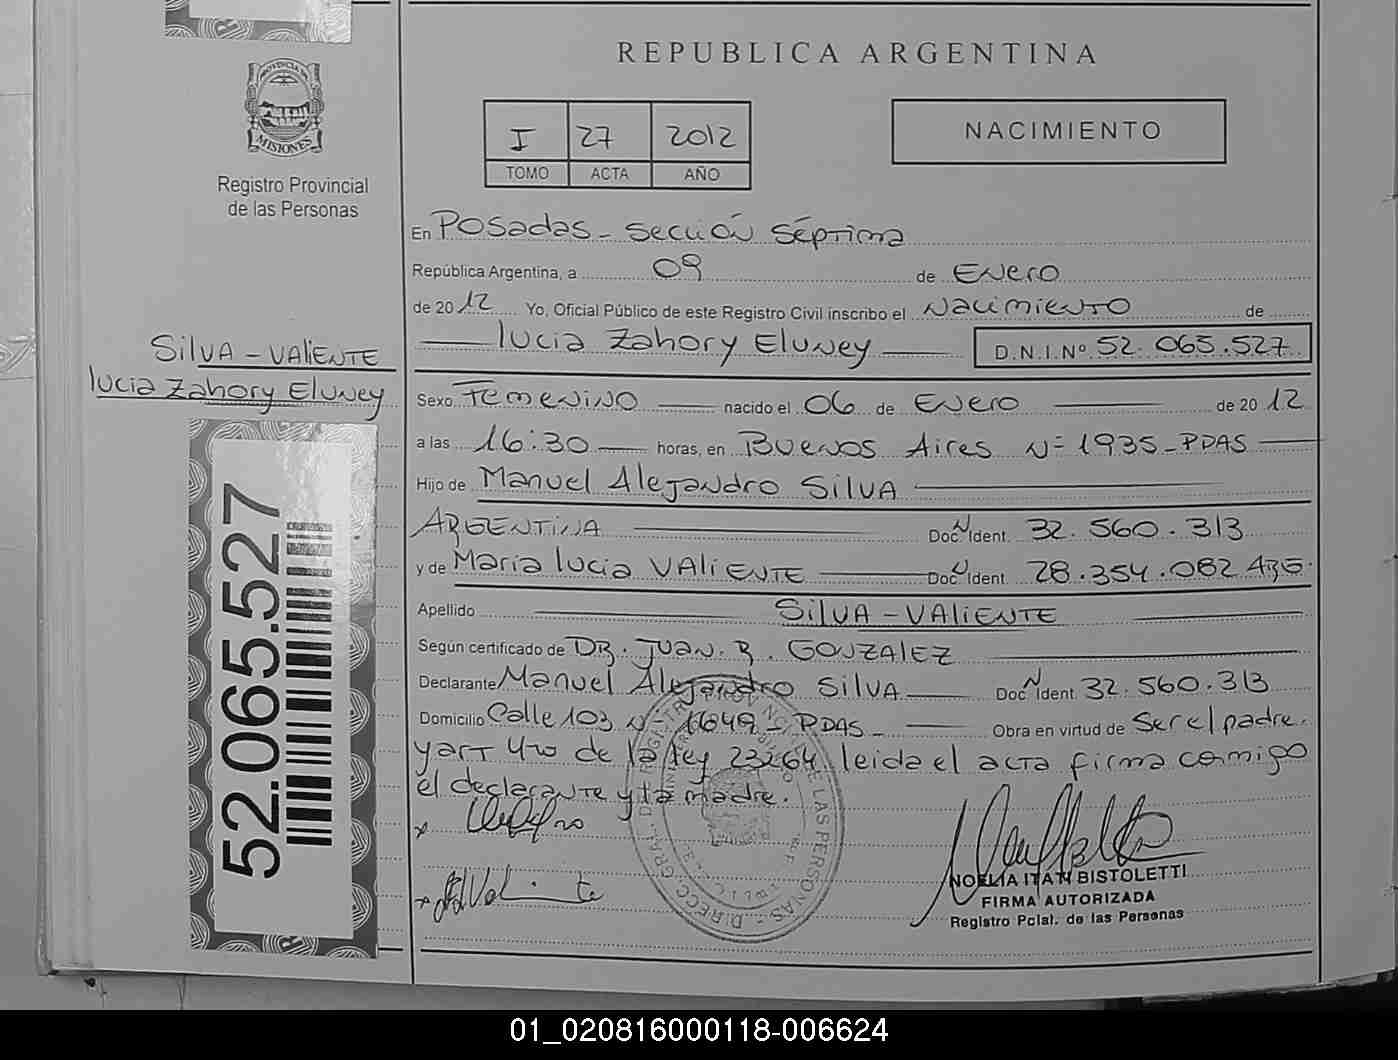 REPUBLICA ARGENTINA
PROVINCIA DE
MISIONES
Registro Provincial
de las Personas
I 27 2012
TOMO ACTA AÑO
NACIMIENTO
En Posadas - Sección Séptima
República Argentina, a 09 de Enero
de 2012 Yo, Oficial Público de este Registro Civil inscribo el Nacimiento de
lucia Zahory Eluney D.N.I.Nº 52.065.527
SilVA - VALIENTE
lucia Zahory Eluney
Sexo Femenino nacido el 06 de Enero de 2012
a las 16:30 horas, en Buenos Aires Nº 1935 - PDAS
Hijo de Manuel Alejandro SilVA
ARGENTINA Doc. N Ident. 32.560.313
y de Maria lucia VALIENTE Doc. N Ident. 28.354.082 ARG.
Apellido SilVA - VALIENTE
Según certificado de DR. JUAN. R. GONZALEZ
Declarante Manuel Alejandro SilVA Doc. N Ident. 32.560.313
Domicilio Calle 103 Nº 1649 - PDAS - Obra en virtud de Ser el padre.
y art 4to de la ley 23264 leida el acta firma conmigo
el declarante y la madre.
52.065.527
NOELIA ITATI BISTOLETTI
FIRMA AUTORIZADA
Registro Pcial. de las Personas
01_020816000118-006624